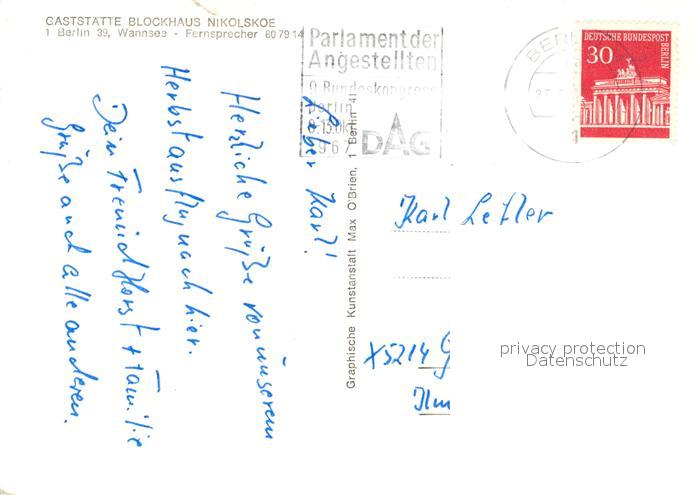 GASTSTÄTTE BLOCKHAUS NIKOLSKOE
1 Berlin 39, Wannsee - Fernsprecher 807914
Parlament der
Angestellten
9. Bundeskongress
Berlin
8.-13. Okt.
1967 DAG
BERLIN
1
DEUTSCHE BUNDESPOST
BERLIN
30
Lieber Karl!
Herzliche Grüße von unserem
Herbstausflug nach hier.
Dein Freund Horst + Familie
Grüße auch alle anderen.
Graphische Kunstanstalt Max O'Brien, 1 Berlin 41
Karl Letler
X5214 G
Ilm
privacy protection
Datenschutz